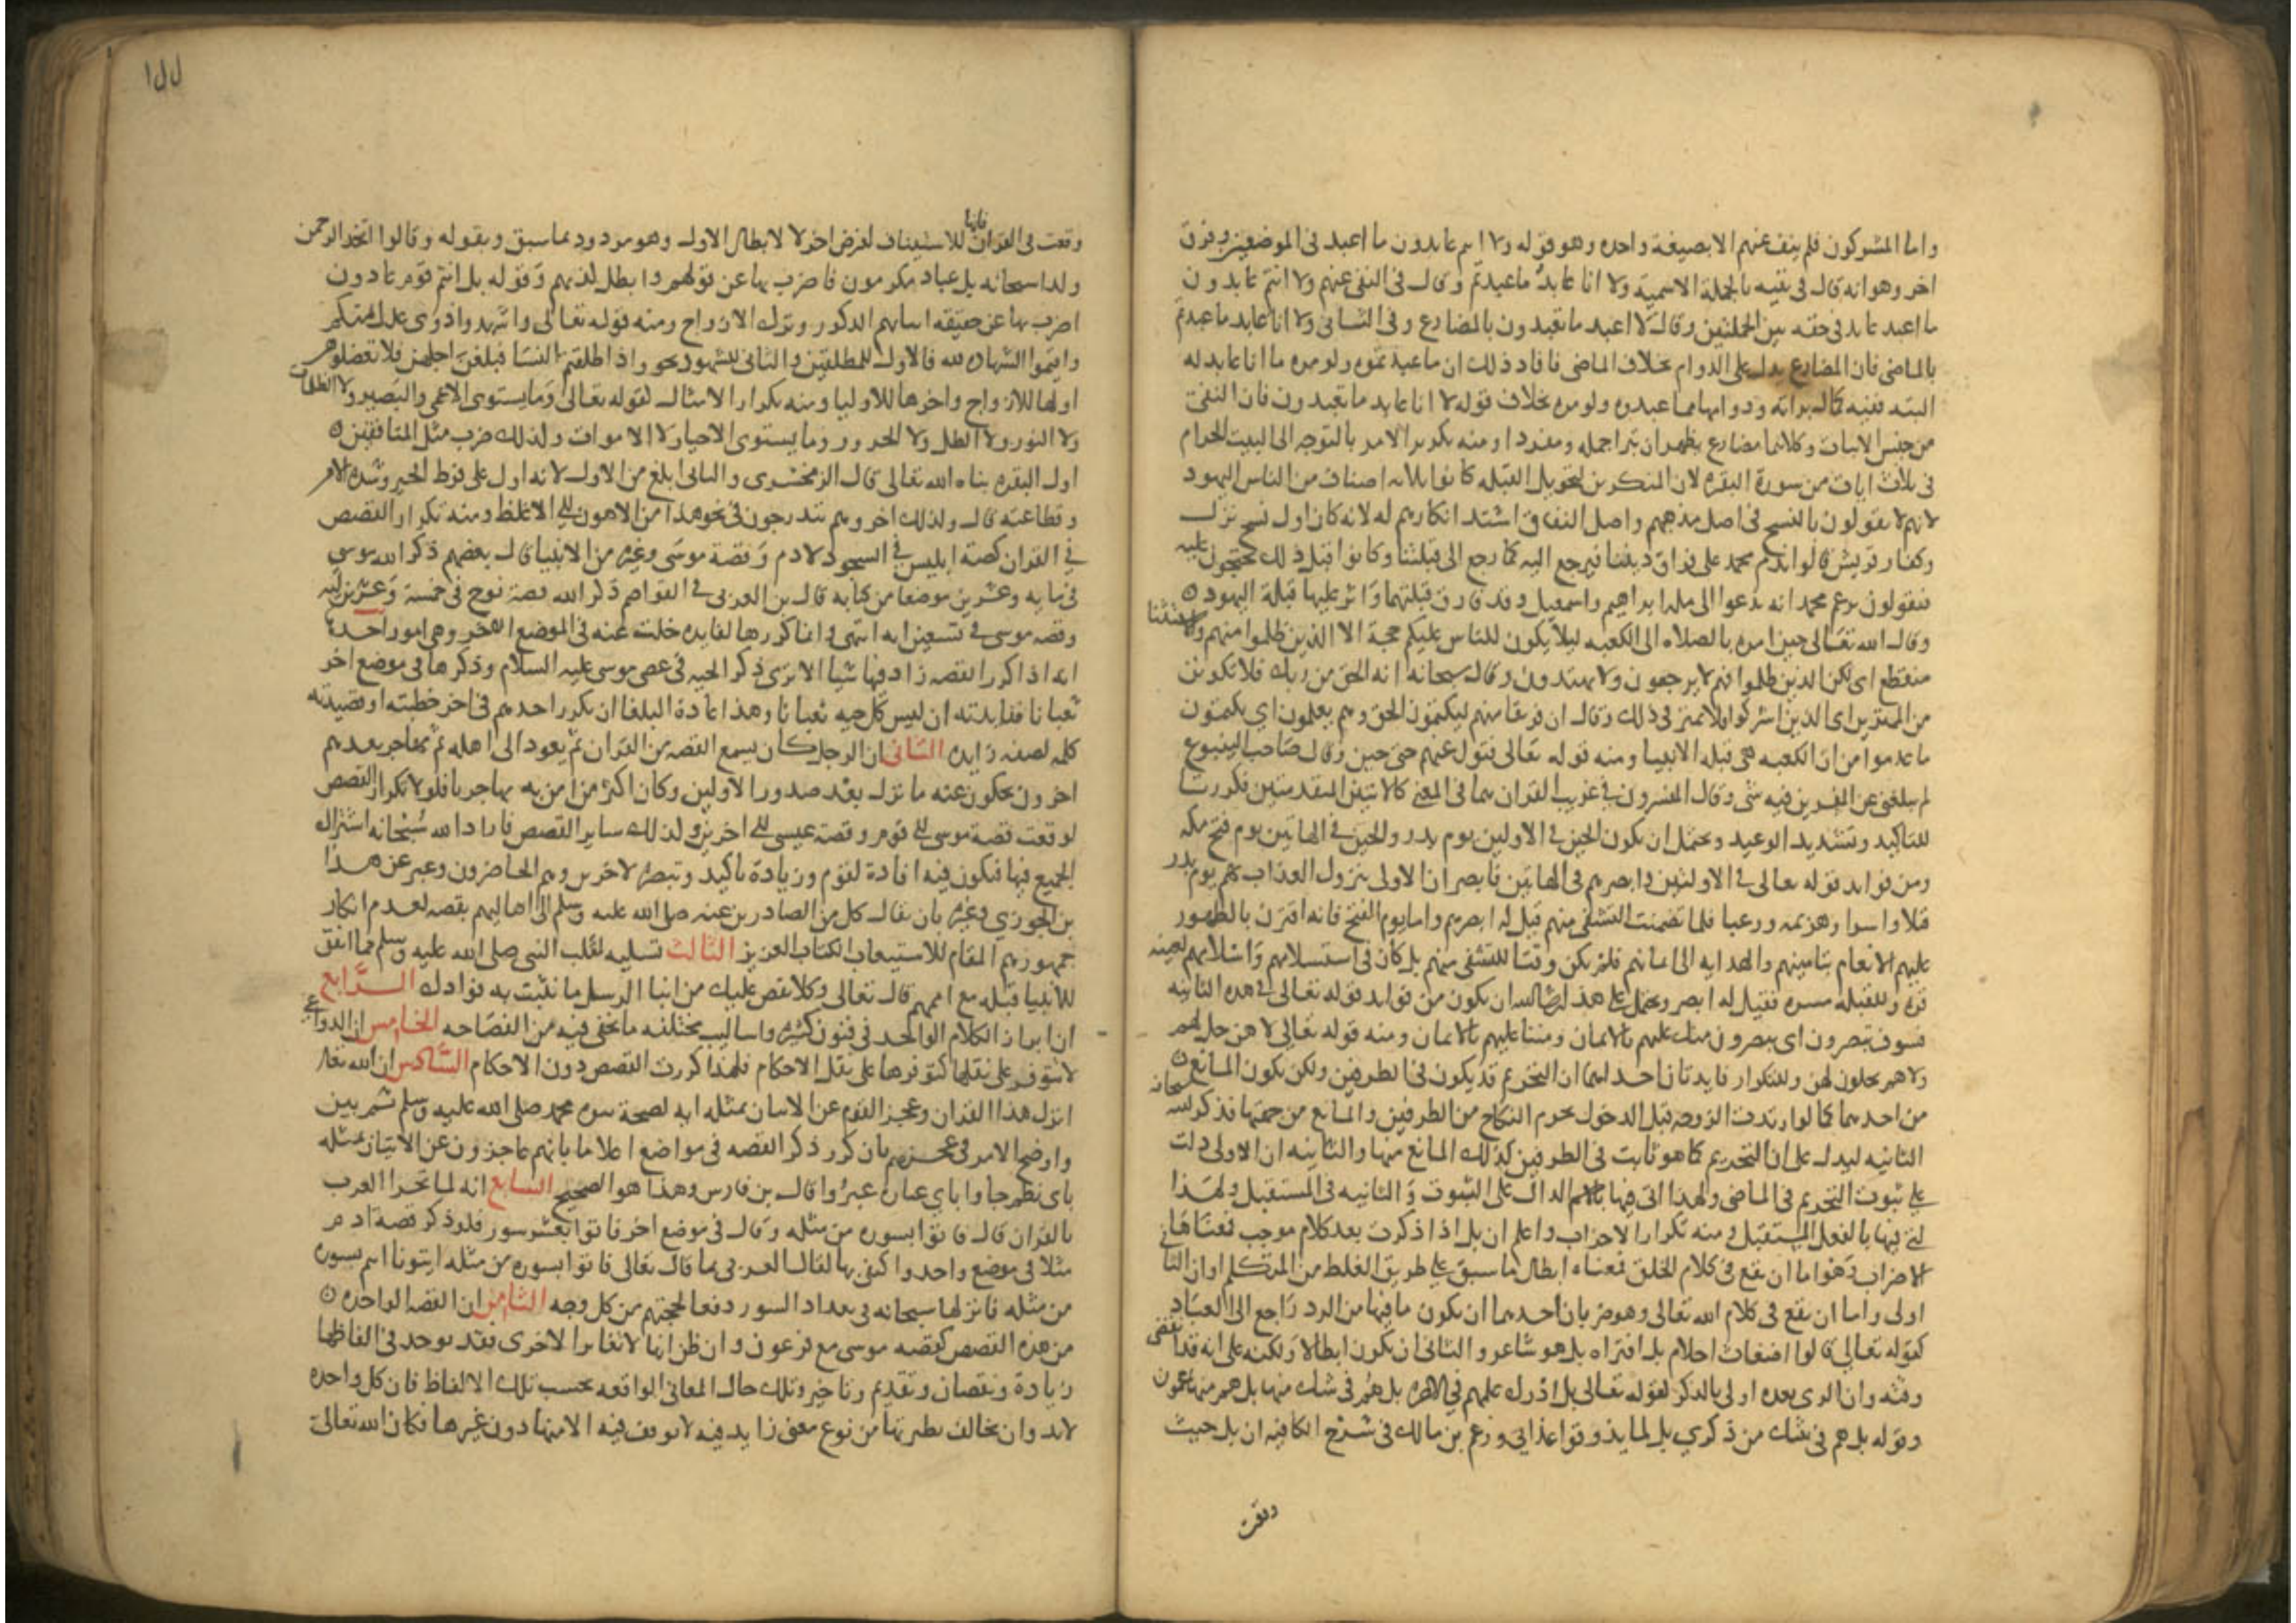 واما المشركون فلم ينف عنهم الا بصيغة واحده وهو قوله ولا انتم عابدون ما اعبد في الموضعين وفرق
اخر وهو انه قال في نفيه بالجملة الاسمية ولا انا عابد ما عبدتم وقال في النفي عنهم ولا انتم عابدون
ما اعبد عابد في حقه بين الجملتين وقال لا اعبد ما تعبدون بالمضارع وفي الثاني ولا انا عابد ما عبدتم
بالماضي فان المضارع يدل على الدوام بخلاف الماضي فافاد ذلك ان ما عبدتموه ولو مره ما انا عابد له
البته ففيه كمال براته ودوامها مما عبدوه ولو مره بخلاف قوله لا انا عابد ما تعبدون فان النفي
من جنس الاثبات وكلاهما مضارع يظهران تبرا جمله ومفردا ومنه تكرير الامر بالتوجه الى البيت الحرام
في ثلاث ايات من سورة البقره لان المنكرين لتحويل القبله كانوا ثلاثه اصناف من الناس اليهود
لانهم لا يقولون بالنسخ في اصل مذهبهم واصل النفاق اشتد انكارهم له لانه كان اول نسخ نزل
وكفار قريش قالوا ندم محمد على فراق ديننا فيرجع اليه كما رجع الى قبلتنا وكانوا قبل ذلك يحتجون عليه
فيقولون يزعم محمد انه يدعوا الى ملة ابراهيم واسمعيل وقد فارق قبلتهما واثر عليها قبلة اليهود
وقال الله تعالى حين امره بالصلاه الى الكعبه ليلا يكون للناس عليكم حجة الا الذين ظلموا منهم والاستثنا
منقطع اي لكن الذين ظلموا منهم لا يرجعون ولا يهتدون وقال سبحانه انه الحق من ربك فلا تكونن
من الممترين اي الذين اشركوا فلا تمتر في ذلك وقال ان فريقا منهم ليكتمون الحق وهم يعلمون اي يكتمون
ما علموا من ان الكعبه هي قبله الانبيا ومنه قوله تعالى فتول عنهم حتى حين وقال صاحب الينبوع
لم يبلغني عن المفسرين فيه شي وقال المفسرون في غريب القران هما في المعنى كالايتين المتقدمتين فكررتا
للتاكيد وتشديد الوعيد ويحتمل ان يكون الحين في الاولين يوم بدر والحين في الهاتين يوم فتح مكه
ومن فوايد قوله تعالى في الاولتين وابصرهم وفي الهاتين فابصر ان الاولى بنزول العذاب بهم يوم بدر
قتلا واسرا وهزيمه ورعبا فلما تضمنت التشفي منهم قيل له ابصرهم واما يوم الفتح فانه اقترن بالظهور
عليهم الانعام بتامينهم والهدايه الى ايمانهم فلم يكن وقتا للتشفي منهم بل كان في استسلامهم واسلامهم لعينه
قره ولقلبه مسره فقيل له ابصر ويحتمل على هذا ان شا الله ان يكون من فوايد قوله تعالى في هذه الثانيه
فسوف يبصرون اي يبصرون منك عليهم بالامان ومننا عليهم بالايمان ومنه قوله تعالى لا هن حل لهم
ولا هم يحلون لهن وللتكرار فايدتان احداهما ان التحريم قد يكون في الطرفين ولكن يكون المانع
من احدهما كما لو ارتدت الزوجه قبل الدخول يحرم النكاح من الطرفين والمانع من جهتها فذكر الله سبحانه
الثانيه ليدل على ان التحريم كما هو ثابت في الطرفين كذلك المانع منها والثانيه ان الاولى دلت
على ثبوت التحريم في الماضي ولهذا اتى فيها بالاسم الدال على الثبوت والثانيه في المستقبل ولهذا
اتى فيها بالفعل المستقبل ومنه تكرار الاضراب واعلم ان بل اذا ذكرت بعد كلام موجب فمعناها
الاضراب وهو اما ان يقع في كلام الخلق فمعناه ابطال ما سبق على طريق الغلط من المتكلم او ان الثاني
اولى واما ان يقع في كلام الله تعالى وهو ضربان احدهما ان يكون ما فيها من الرد راجع الى العباد
كقوله تعالى قالوا اضغاث احلام بل افتراه بل هو شاعر والثاني ان يكون ابطالا ولكنه على انه قد انقضى
وقته وان الذي بعده اولى بالذكر لقوله تعالى بل ادرك علمهم في الاخره بل هم في شك منها بل هم منها عمون
وقوله بل هم في شك من ذكري بل لما يذوقوا عذابي وزعم بن مالك في شرح الكافيه ان بل حيث
وقعت
وقعت في القران فانها للاستيناف لغرض اخر لا لابطال الاول وهو مردود بما سبق وبقوله وقالوا اتخذ الرحمن
ولدا سبحانه بل عباد مكرمون فاضرب بها عن قولهم وابطل كذبهم وقوله بل انتم قوم عادون
اضرب بها عن حقيقه اتيانهم الذكور وترك الازواج ومنه قوله تعالى واشهدوا ذوى عدل منكم
واقيموا الشهاده لله فالاول للمطلقين والثاني للشهود نحو واذا طلقتم النسا فبلغن اجلهن فلا تعضلوهن
اولها للازواج واخرها للاوليا ومنه تكرار الامثال لقوله تعالى وما يستوى الاعمى والبصير ولا الظلمات
ولا النور ولا الظل ولا الحرور وما يستوى الاحيا ولا الاموات ولذلك ضرب مثل المنافقين
اول البقره بناه الله تعالى قال الزمخشري والثاني ابلغ من الاول لانه ادل على فرط الحيره وشده الامر
وفظاعته قال ولذلك اخر وهم يتدرجون في نحو هذا من الاهون الى الاغلظ ومنه تكرار القصص
في القران كقصة ابليس في السجود لادم وقصة موسى وغيره من الانبيا قال بعضهم ذكر الله موسى
في مايه وعشرين موضعا من كتابه قال بن العربي في القواصم ذكر الله قصة نوح في خمسة وعشرين ايه
وقصه موسى في تسعين ايه انتهى وانما كررها لفايده خلت عنه في الموضع الاخر وهي امور احدها
انه اذا كرر القصه زاد فيها شيا الا ترى ذكر الحيه في عصى موسى عليه السلام وذكرها في موضع اخر
ثعبانا ففايدته ان ليس كل حيه ثعبانا وهذا عادة البلغا ان يكرر احدهم في اخر خطبته او قصيدته
كلمه لصفه زايده الثاني ان الرجل كان يسمع القصه من القران ثم يعود الى اهله ثم يهاجر بعدهم
اخرون يحكون عنه ما نزل بعد صدور الاولين وكان اكثر من امن به مهاجريا فلولا تكرار القصص
لوقعت قصة موسى الى قوم وقصة عيسى الى اخرين وكذلك ساير القصص فاراد الله سبحانه اشتراك
الجميع فيها فيكون فيه افادة لقوم وزيادة تاكيد وتبصرة لاخرين وهم الحاضرون وعبر عن هذا
بن الجوزي وغيره بان يقال كل من الصادرين عنه صلى الله عليه وسلم الى اهاليهم بقصه لعدم انكار
جمهورهم المقام للاستيعاب الكتاب العزيز الثالث تسليه لقلب النبي صلى الله عليه وسلم مما اتفق
للانبيا قبله مع اممهم قال تعالى وكلا نقص عليك من انبا الرسل ما نثبت به فوادك الرابع
ان ابراز الكلام الواحد في فنون كثيره واساليب مختلفه ما يخفى فيه من الفصاحه الخامس ان الدواعي
لا تتوفر على نقلها كتوفرها على نقل الاحكام فلهذا كررت القصص دون الاحكام السادس ان الله تعالى
انزل هذا القران وعجز القوم عن الاتيان بمثله ايه لصحة نبوه محمد صلى الله عليه وسلم ثم بين
واوضح الامر في عجزهم بان كرر ذكر القصه في مواضع اعلاما بانهم عاجزون عن الاتيان بمثله
باى نظم جاوا باي عباره عبروا قال بن فارس وهذا هو الصحيح السابع انه لما تحدا العرب
بالقران قال فاتوا بسوره من مثله وقال في موضع اخر فاتوا بعشر سور فلو ذكر قصة ادم
مثلا في موضع واحد واكتفى بها لقال العربي بما قال تعالى فاتوا بسوره من مثله ايتونا انتم بسوره
من مثله فانزلها سبحانه في تعداد السور دفعا لحجتهم من كل وجه الثامن ان القصه الواحده
من هذه القصص كقصه موسى مع فرعون وان ظن انها لا تغاير الاخرى فقد يوجد في الفاظها
زيادة ونقصان وتقديم وتاخير وتلك حال المعاني الواقعه بحسب تلك الالفاظ فان كل واحده
لابد وان يخالف نظيرتها من نوع معنى زايد فيه لا يوقف فيه الا منها دون غيرها فكان الله تعالى